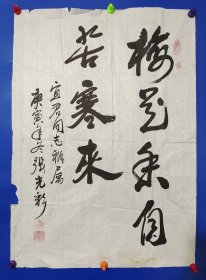 梅花香自
苦寒來
宜君同志雅属
庚寅年冬張光彩